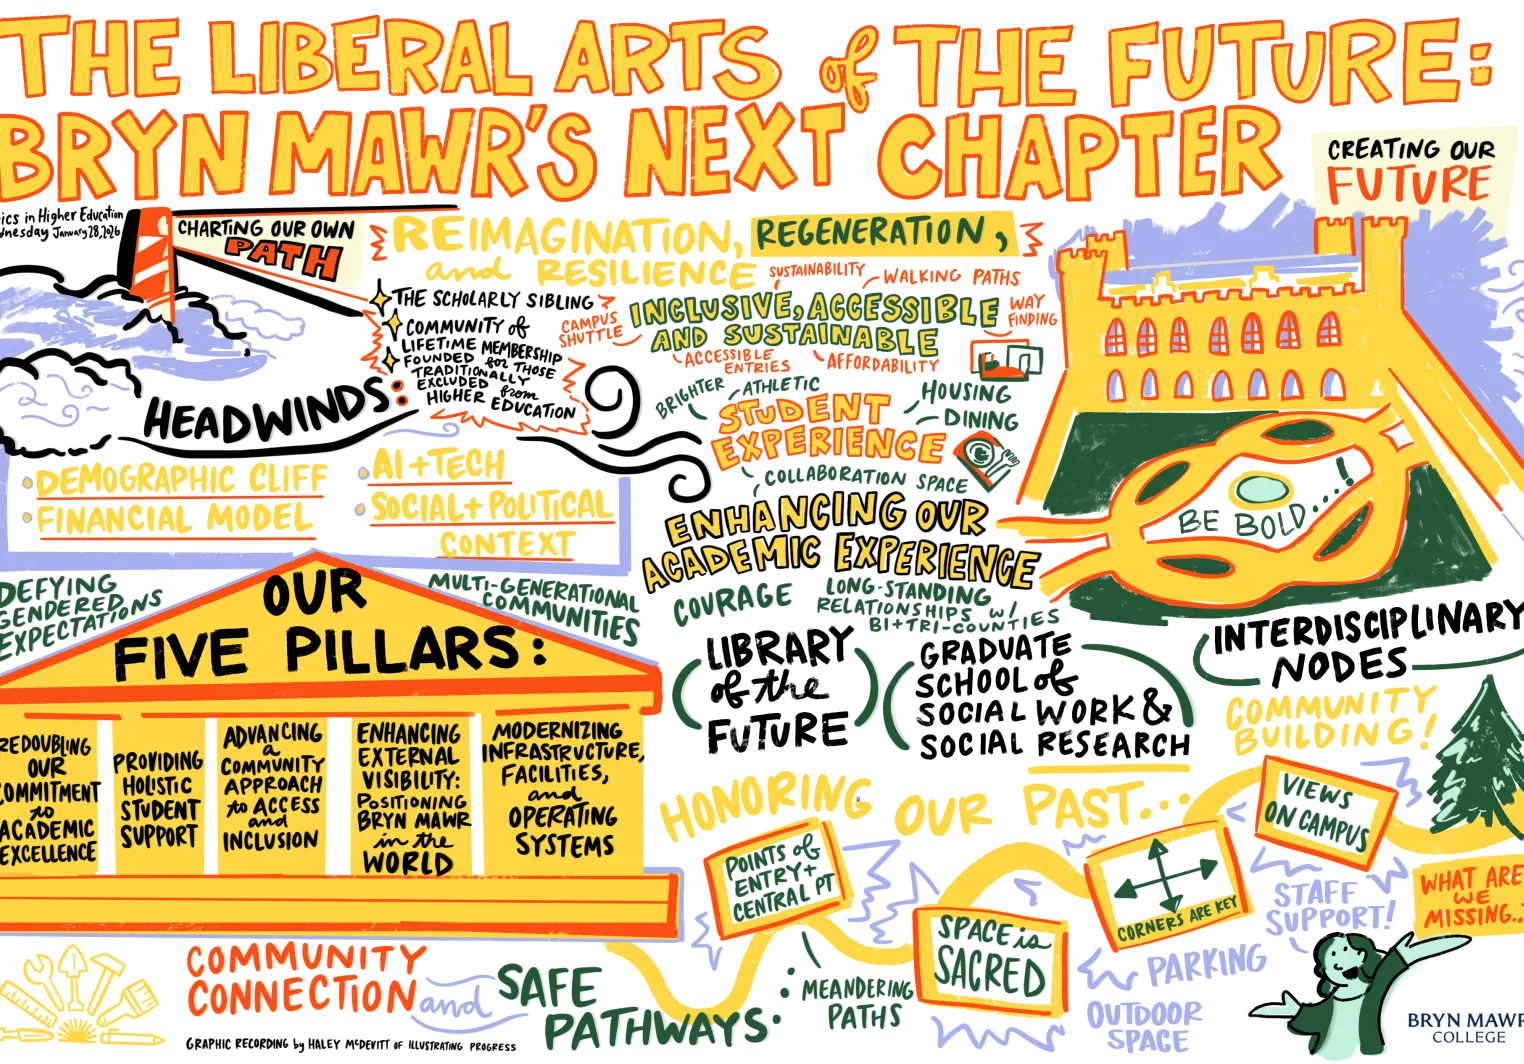 THE LIBERAL ARTS of THE FUTURE:
BRYN MAWR'S NEXT CHAPTER
ics in Higher Education
nesday January 28, 2026
CHARTING OUR OWN
PATH
CREATING OUR
FUTURE
REIMAGINATION, REGENERATION,
and RESILIENCE
THE SCHOLARLY SIBLING
COMMUNITY of
LIFETIME MEMBERSHIP
FOUNDED for THOSE
TRADITIONALLY
EXCLUDED from
HIGHER EDUCATION
HEADWINDS:
• DEMOGRAPHIC CLIFF
• FINANCIAL MODEL
• AI + TECH
• SOCIAL + POLITICAL
CONTEXT
SUSTAINABILITY
WALKING PATHS
CAMPUS
SHUTTLE
INCLUSIVE, ACCESSIBLE
AND SUSTAINABLE
WAY
FINDING
ACCESSIBLE
ENTRIES
AFFORDABILITY
BRIGHTER
ATHLETIC
HOUSING
DINING
STUDENT
EXPERIENCE
COLLABORATION SPACE
ENHANCING OUR
ACADEMIC EXPERIENCE
COURAGE
LONG-STANDING
RELATIONSHIPS w/
BI + TRI-COUNTIES
BE BOLD...!
DEFYING
GENDERED
EXPECTATIONS
MULTI-GENERATIONAL
COMMUNITIES
OUR
FIVE PILLARS:
REDOUBLING
OUR
COMMITMENT
to
ACADEMIC
EXCELLENCE
PROVIDING
HOLISTIC
STUDENT
SUPPORT
ADVANCING
a
COMMUNITY
APPROACH
to ACCESS
and
INCLUSION
ENHANCING
EXTERNAL
VISIBILITY:
POSITIONING
BRYN MAWR
in the
WORLD
MODERNIZING
INFRASTRUCTURE,
FACILITIES,
and
OPERATING
SYSTEMS
LIBRARY
of the
FUTURE
GRADUATE
SCHOOL of
SOCIAL WORK &
SOCIAL RESEARCH
INTERDISCIPLINARY
NODES
COMMUNITY
BUILDING!
HONORING OUR PAST...
POINTS of
ENTRY +
CENTRAL PT
SPACE is
SACRED
CORNERS ARE KEY
VIEWS
ON CAMPUS
STAFF
SUPPORT!
WHAT ARE
WE
MISSING..
COMMUNITY
CONNECTION and SAFE
PATHWAYS:
MEANDERING
PATHS
PARKING
OUTDOOR
SPACE
GRAPHIC RECORDING by HALEY McDEVITT OF ILLUSTRATING PROGRESS
BRYN MAWR
COLLEGE